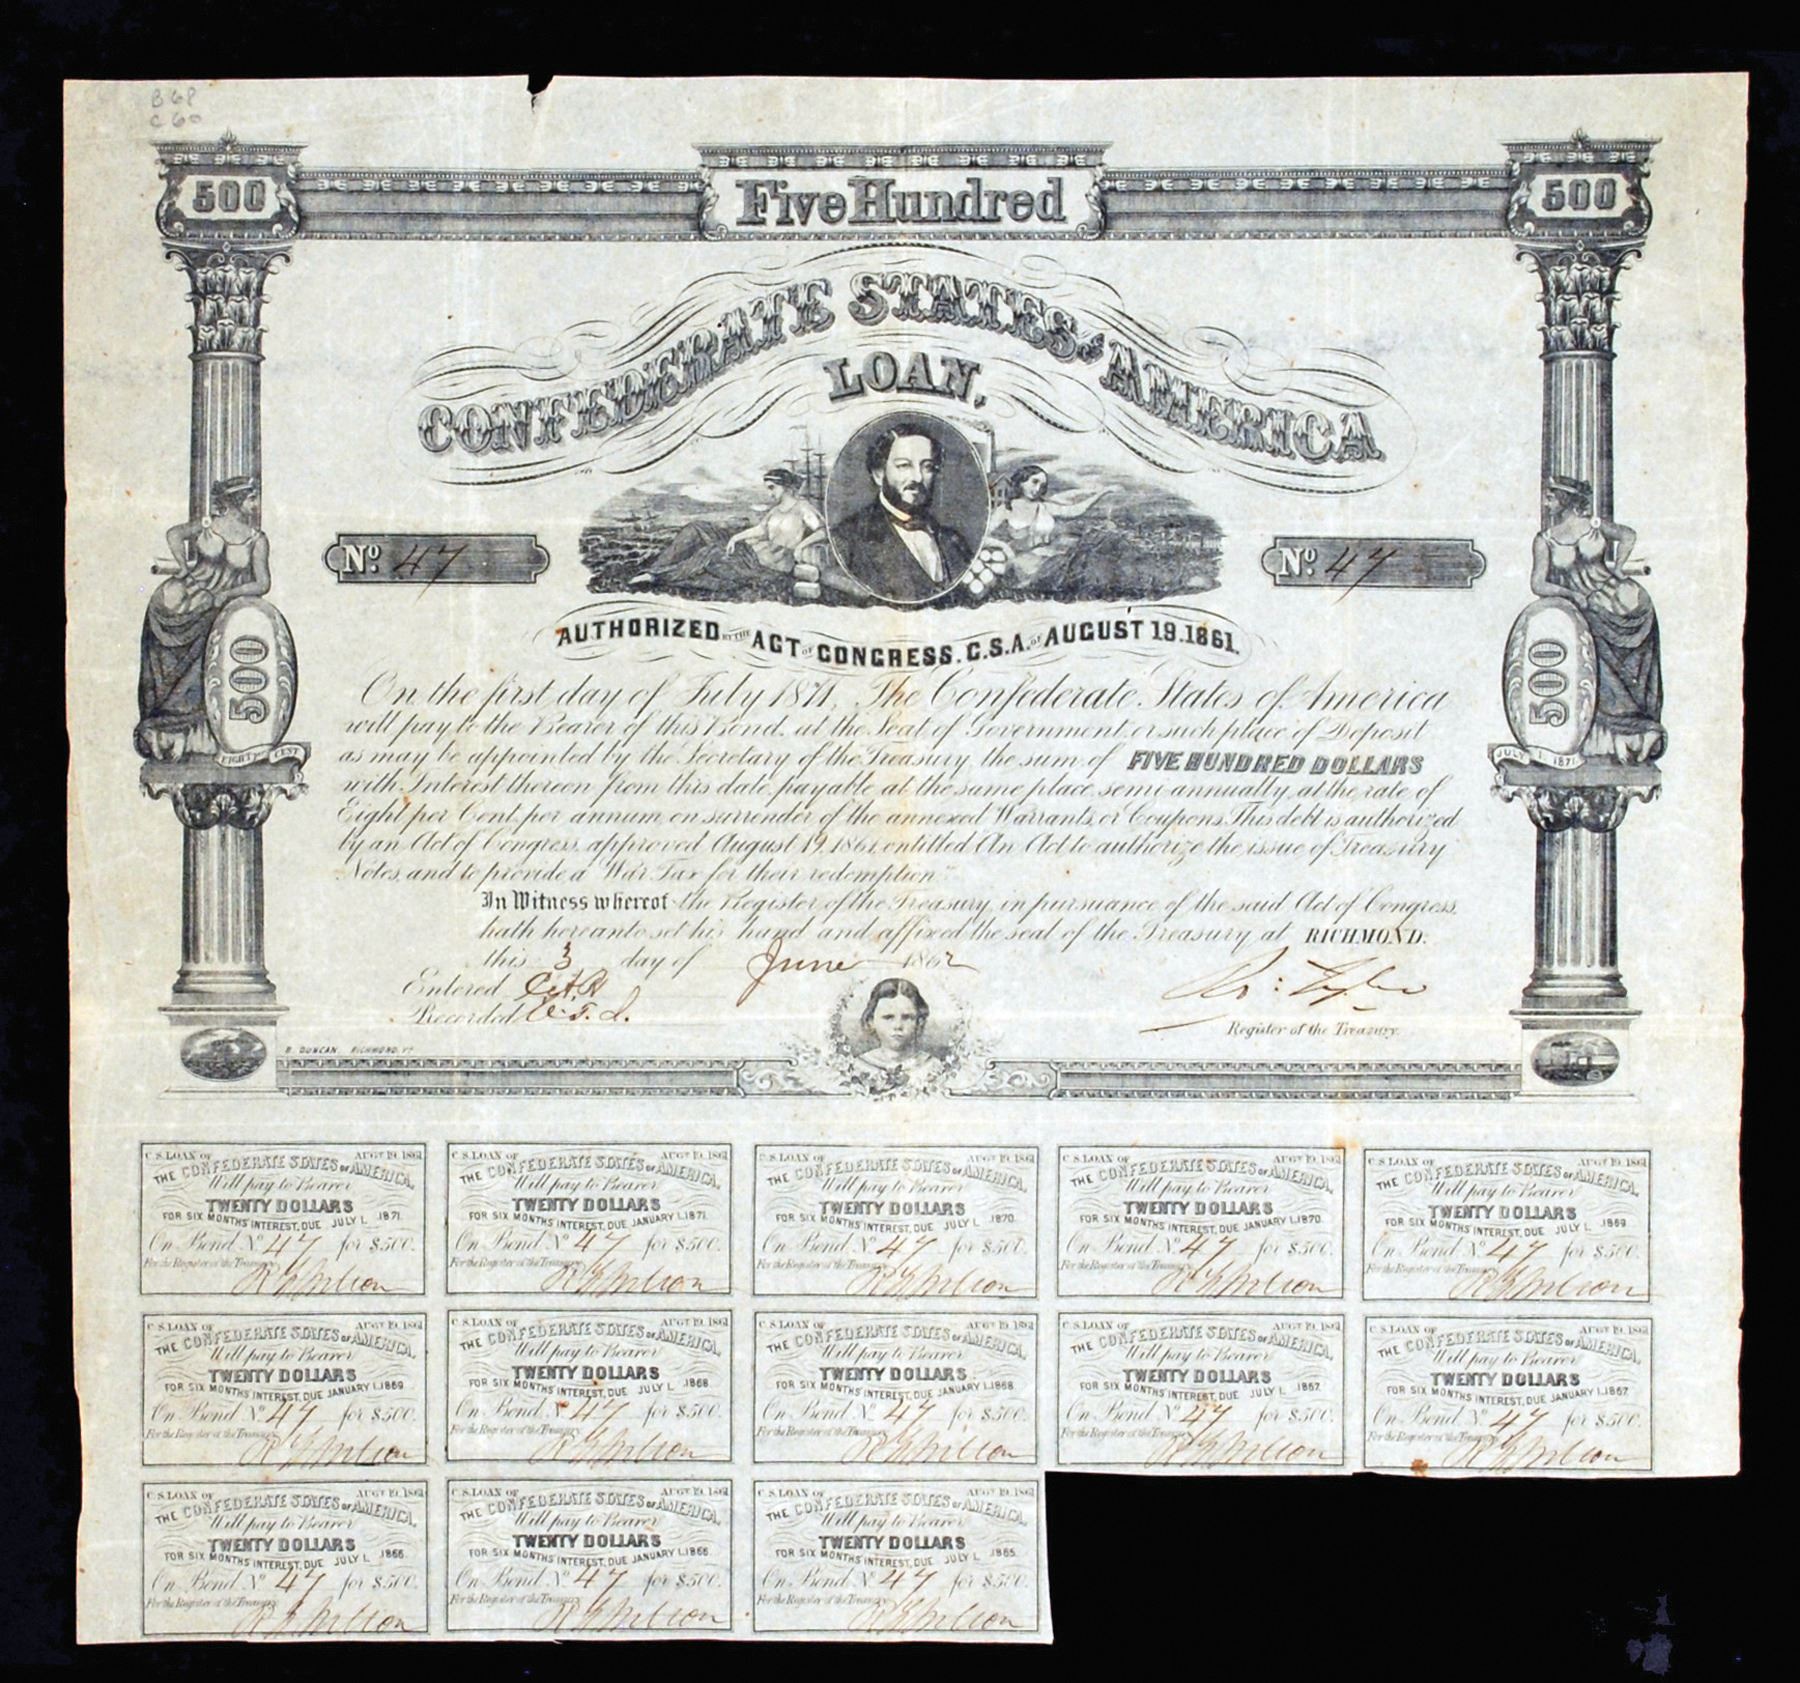 B 68
C 60
500
Five Hundred
500
CONFEDERATE STATES OF AMERICA
LOAN,
No. 47
No. 47
AUTHORIZED BY THE ACT OF CONGRESS. C.S.A. OF AUGUST 19. 1861.
On the first day of July 1871, The Confederate States of America
will pay to the Bearer of this Bond, at the Seat of Government, or such place of Deposit
as may be appointed by the Secretary of the Treasury, the sum of FIVE HUNDRED DOLLARS
with Interest thereon from this date, payable at the same place, semi-annually, at the rate of
Eight per Cent. per annum, on surrender of the annexed Warrants, or Coupons. This debt is authorized
by an Act of Congress, approved August 19, 1861, entitled An Act to authorize the issue of Treasury
Notes, and to provide a War Tax for their redemption."
In Witness whereof the Register of the Treasury, in pursuance of the said Act of Congress,
hath hereunto set his hand and affixed the seal of the Treasury at RICHMOND.
this 3 day of June 1862
Entered
Recorded
Register of the Treasury.
500
EIGHT PER CENT
500
JULY 1. 1871
B. DUNCAN. RICHMOND, VA
C.S LOAN OF AUGT 19. 1861
THE CONFEDERATE STATES OF AMERICA.
Will pay to Bearer
TWENTY DOLLARS
FOR SIX MONTHS INTEREST, DUE JULY 1. 1871.
On Bond No 47 for $500.
For the Register of the Treasury
C.S LOAN OF AUGT 19. 1861
THE CONFEDERATE STATES OF AMERICA.
Will pay to Bearer
TWENTY DOLLARS
FOR SIX MONTHS INTEREST, DUE JANUARY 1. 1871.
On Bond No 47 for $500.
For the Register of the Treasury
C.S LOAN OF AUGT 19. 1861
THE CONFEDERATE STATES OF AMERICA.
Will pay to Bearer
TWENTY DOLLARS
FOR SIX MONTHS INTEREST, DUE JULY 1. 1870.
On Bond No 47 for $500.
For the Register of the Treasury
C.S LOAN OF AUGT 19. 1861
THE CONFEDERATE STATES OF AMERICA.
Will pay to Bearer
TWENTY DOLLARS
FOR SIX MONTHS INTEREST, DUE JANUARY 1. 1870.
On Bond No 47 for $500.
For the Register of the Treasury
C.S LOAN OF AUGT 19. 1861
THE CONFEDERATE STATES OF AMERICA.
Will pay to Bearer
TWENTY DOLLARS
FOR SIX MONTHS INTEREST, DUE JULY 1. 1869.
On Bond No 47 for $500.
For the Register of the Treasury
C.S LOAN OF AUGT 19. 1861
THE CONFEDERATE STATES OF AMERICA.
Will pay to Bearer
TWENTY DOLLARS
FOR SIX MONTHS INTEREST, DUE JANUARY 1. 1869.
On Bond No 47 for $500.
For the Register of the Treasury
C.S LOAN OF AUGT 19. 1861
THE CONFEDERATE STATES OF AMERICA.
Will pay to Bearer
TWENTY DOLLARS
FOR SIX MONTHS INTEREST, DUE JULY 1. 1868.
On Bond No 47 for $500.
For the Register of the Treasury
C.S LOAN OF AUGT 19. 1861
THE CONFEDERATE STATES OF AMERICA.
Will pay to Bearer
TWENTY DOLLARS
FOR SIX MONTHS INTEREST, DUE JANUARY 1. 1868.
On Bond No 47 for $500.
For the Register of the Treasury
C.S LOAN OF AUGT 19. 1861
THE CONFEDERATE STATES OF AMERICA.
Will pay to Bearer
TWENTY DOLLARS
FOR SIX MONTHS INTEREST, DUE JULY 1. 1867.
On Bond No 47 for $500.
For the Register of the Treasury
C.S LOAN OF AUGT 19. 1861
THE CONFEDERATE STATES OF AMERICA.
Will pay to Bearer
TWENTY DOLLARS
FOR SIX MONTHS INTEREST, DUE JANUARY 1. 1867.
On Bond No 47 for $500.
For the Register of the Treasury
C.S LOAN OF AUGT 19. 1861
THE CONFEDERATE STATES OF AMERICA.
Will pay to Bearer
TWENTY DOLLARS
FOR SIX MONTHS INTEREST, DUE JULY 1. 1866.
On Bond No 47 for $500.
For the Register of the Treasury
C.S LOAN OF AUGT 19. 1861
THE CONFEDERATE STATES OF AMERICA.
Will pay to Bearer
TWENTY DOLLARS
FOR SIX MONTHS INTEREST, DUE JANUARY 1. 1866.
On Bond No 47 for $500.
For the Register of the Treasury
C.S LOAN OF AUGT 19. 1861
THE CONFEDERATE STATES OF AMERICA.
Will pay to Bearer
TWENTY DOLLARS
FOR SIX MONTHS INTEREST, DUE JULY 1. 1865.
On Bond No 47 for $500.
For the Register of the Treasury